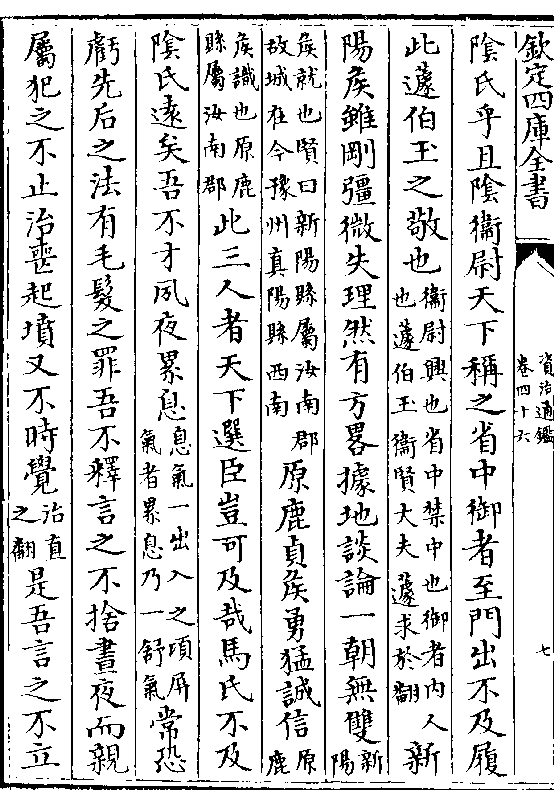 欽定四庫全書
資治通鑑
卷四十六
七
陰氏乎且陰衞尉天下稱之省中御者至門出不及履
此蘧伯玉之敬也衞尉興也省中禁中也御者内人也蘧伯玉衞賢大夫蘧求於翻新
陽侯雖剛彊微失理然有方畧據地談論一朝無雙新陽
侯就也賢曰新陽縣屬汝南郡故城在今豫州真陽縣西南原鹿貞侯勇猛誠信原鹿
侯識也原鹿縣屬汝南郡此三人者天下選臣豈可及哉馬氏不及
陰氏遠矣吾不才夙夜累息息氣一出入之頃屏氣者累息乃一舒氣常恐
虧先后之法有毛髮之罪吾不釋言之不捨晝夜而親
屬犯之不止治喪起墳又不時覺治直之翻是吾言之不立